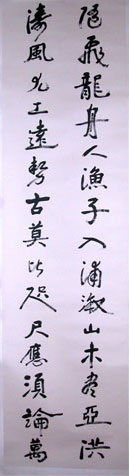 隨飛龍舟人漁子入浦溆山木盡亞洪
濤風尤工遠勢古莫比咫尺應須論萬